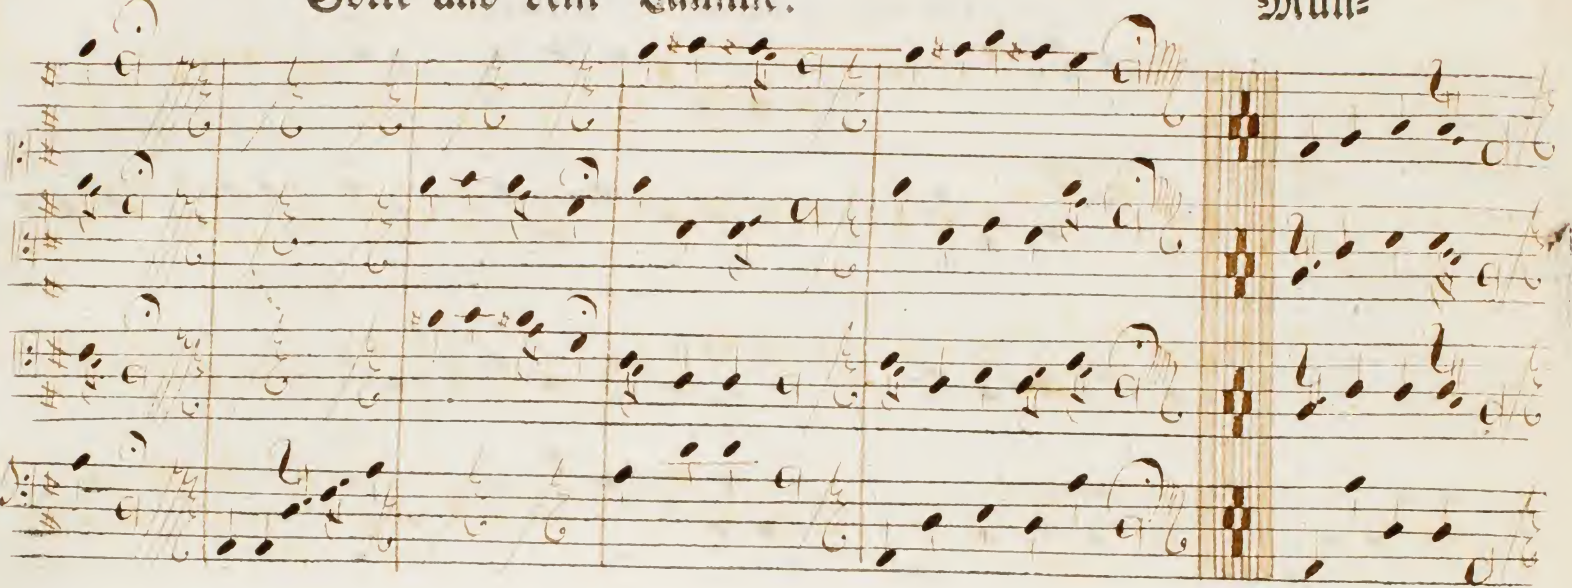 Gott und dem Lamme. Mun=